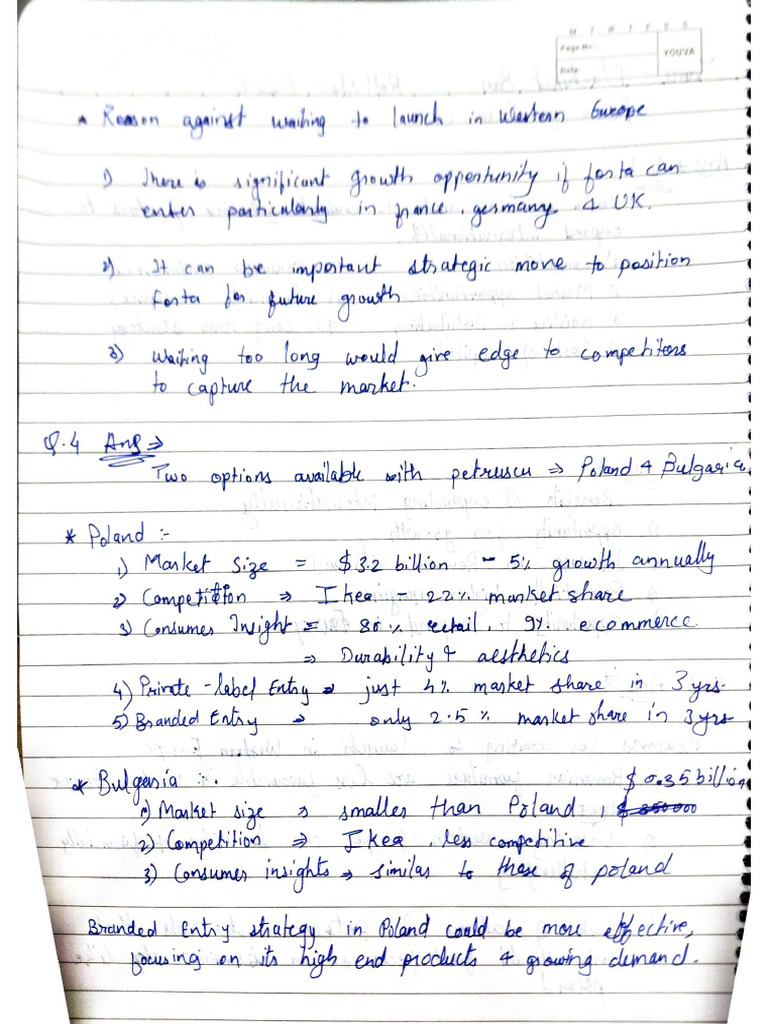 M T W T F S S
Page No.:
YOUVA
Date
* Reason against waiting to launch in Western Europe
1) There is significant growth opportunity if forta can
enter particularly in france, germany & UK.
2) It can be important strategic move to position
Forta for future growth
3) Waiting too long would give edge to competitors
to capture the market.
Q.4 Ans ⇒
Two options available with petrescu ⇒ Poland & Bulgaria
* Poland :-
1) Market Size = $3.2 billion - 5% growth annually
2) Competition ⇒ Ikea - 22% market share
3) Consumer Insight = 80% retail, 9% ecommerce
⇒ Durability & aesthetics
4) Private-label Entry ⇒ just 4% market share in 3 yrs.
5) Branded Entry ⇒ only 2.5% market share in 3 yrs
* Bulgaria :-
$ 0.35 billion
1) Market size ⇒ smaller than Poland,
2) Competition ⇒ Ikea, less competitive
3) Consumer insights ⇒ similar to those of poland
Branded Entry strategy in Poland could be more effective,
focusing on its high end products & growing demand.